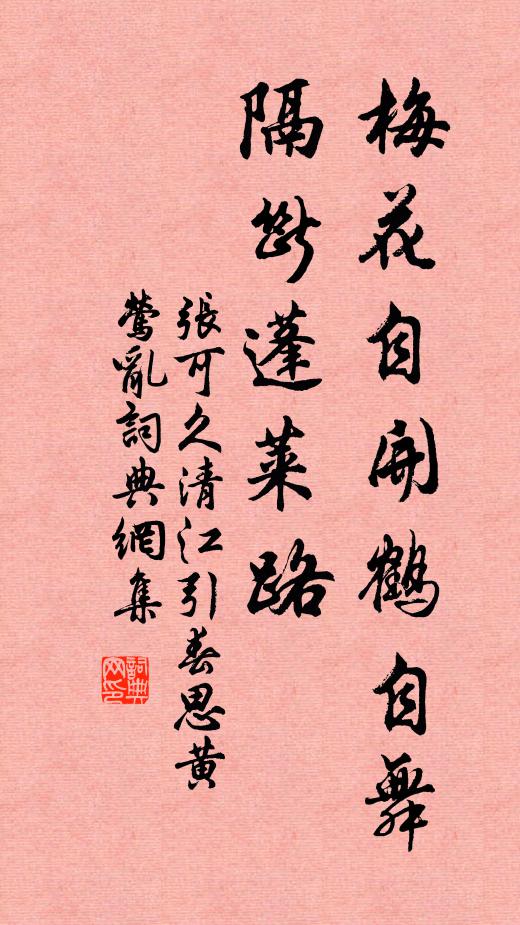 梅花自開鶴自舞
隔斷蓬萊路
張可久清江引春思黄
鶯亂詞典網集
詞典
网印